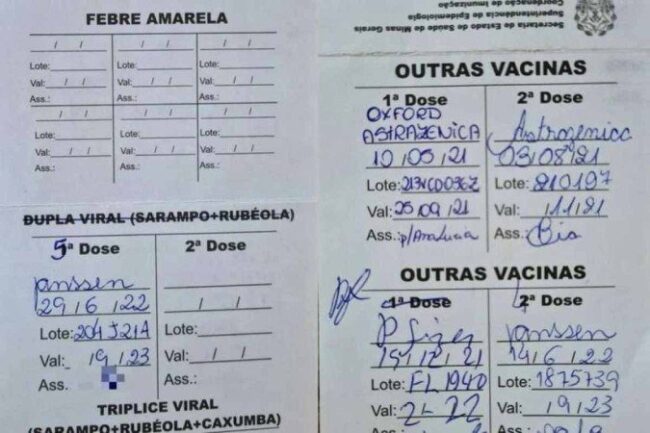 FEBRE AMARELA
/ / / / / /
Lote: Lote: Lote:
Val: / / Val: / / Val: / /
Ass.: Ass.: Ass.:
/ / / / / /
Lote: Lote: Lote:
Val: / / Val: / / Val: / /
Ass.: Ass.: Ass.:
DUPLA VIRAL (SARAMPO+RUBÉOLA)
5ª Dose 2ª Dose
Janssen
29/6/22 / /
Lote: 204J21A Lote:
Val: /9/23 Val: / /
Ass. Ass.:
TRIPLICE VIRAL
(SARAMPO+RUBÉOLA+CAXUMBA)
Secretaria de Estado de Saúde de Minas Gerais
Superintendência de Epidemiologia
Coordenação de Imunização
OUTRAS VACINAS
1ª Dose 2ª Dose
OXFORD
ASTRAZENICA Astrazenica
10/05/21 03/08/21
Lote: Lote: 210197
Val: 25/09/21 Val: 11/21
Ass.: p/Ana Lucia Ass.: Bia
OUTRAS VACINAS
1ª Dose 2ª Dose
Pfizer Janssen
15/12/21 14/6/22
Lote: FL1940 Lote: 1875739
Val: 2-22 Val: /9/23
Ass.: Ass.: